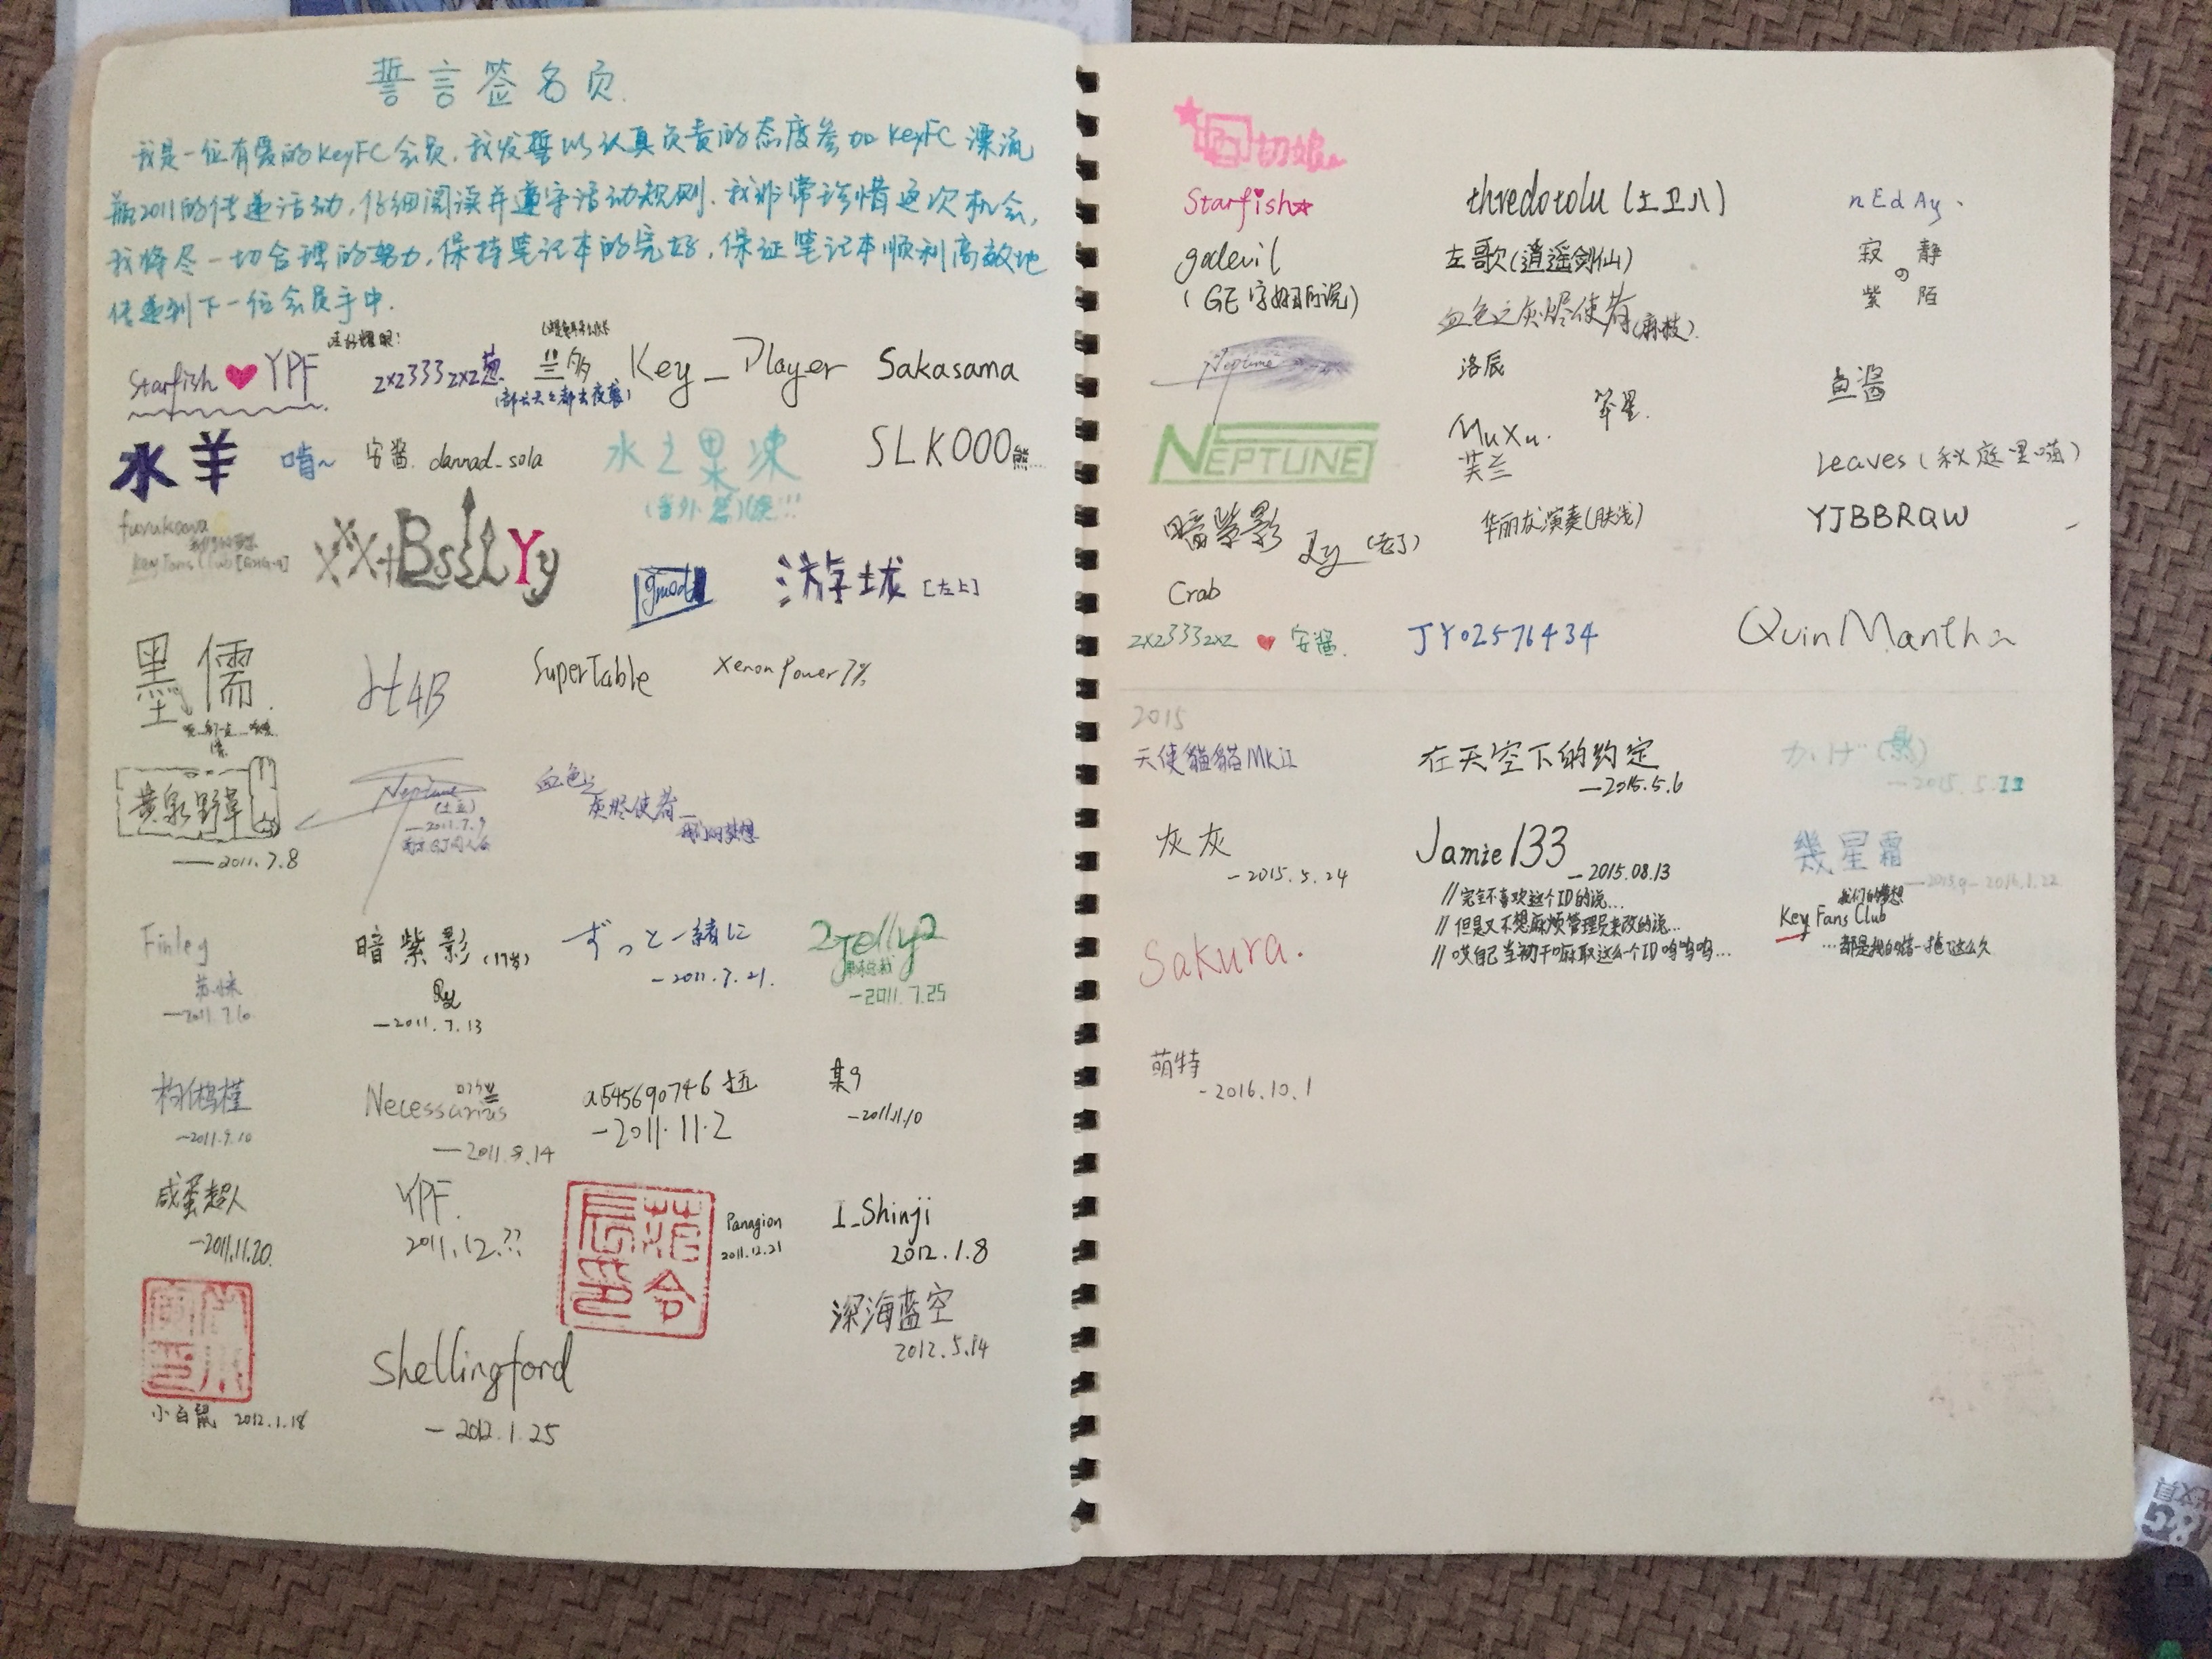 誓言签名页
我是一位有爱的KeyFC会员,我发誓以认真负责的态度参加KeyFC漂流
瓶2011的传递活动,仔细阅读并遵守活动规则.我非常珍惜这次机会,
我将尽一切合理的努力,保持笔记本的完好,保证笔记本顺利高效地
传递到下一位会员手中.
Starfish ♥ YPF
zxz333zxz葱
Key_Player
Sakasama
水羊
啃~
安酱. dannad_sola
水之果冻
(番外篇)
SLK000熊...
furukawa
Key Fans Club
gmot
游域 [左上]
墨儒
SuperTable
XenonPower7%
黄泉野草
—2011.7.8
Neptune
(土豆)
—2011.7.9
血色之
灰烬使者—
我们的梦想
Finley
暗紫影(17岁)
—2011.7.13
ずっと一緒に
—2011.7.21.
2Jelly2
—2011.7.25
—2011.9.10
Necessarius
—2011.9.14
a545690746
—2011.11.2
某9
—2011.11.10
咸蛋超人
—2011.11.20.
YPF.
2011.12.??
Panagion
2011.12.21
I_Shinji
2012.1.8
小白鼠 2012.1.18
Shellingford
—2012.1.25
深海蓝空
2012.5.14
Starfish☆
thredotolu(土卫八)
nEdAy.
godevil
(GE字如馆所说)
左歌(逍遥剑仙)
寂静
の
紫陌
血色之灰烬使者(麻枝).
Neptune
洛辰
笨星.
鱼酱
NEPTUNE
MuXu.
芙兰
Leaves(秋庭里喵)
暗紫影
华丽友演奏(肤浅)
YJBBRQW
Crab
zxz333zxz ♥ 安酱.
JY02576434
QuinMantha
2015
天使貓貓MKII
在天空下的约定
—2015.5.6
かげ(影)
灰灰
—2015.5.24
Jamie133
—2015.08.13
//完全不喜欢这个ID的说...
//但是又不想麻烦管理员来改的说...
//哎自己当初干嘛取这么一个ID呜呜呜...
幾星霜
—2015.9—2016.1.22
我们的梦想
Key Fans Club
...都是我的错一拖了这么久
Sakura.
萌特
—2016.10.1